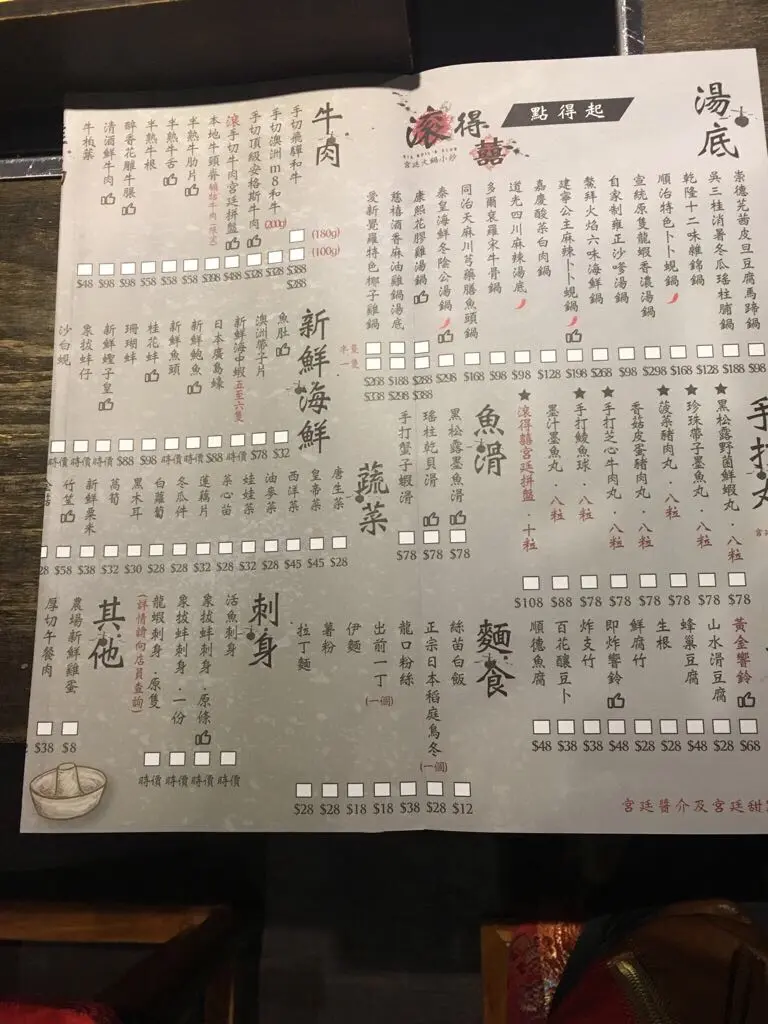 湯底
崇德芫茜皮旦豆腐馬蹄鍋 $98
吳三桂消暑冬瓜瑤柱脯鍋 $188
乾隆十二味雜錦鍋 $128
順治特色卜卜蜆鍋 $168
宣統原隻龍蝦香濃湯鍋 $298
自家制雍正沙嗲湯鍋 $98
鰲拜火焰六味海鮮鍋 $268
建寧公主麻辣卜卜蜆鍋 $198
嘉慶酸菜白肉鍋 $128
道光四川麻辣湯底 $98
多爾袞羅宋牛骨鍋 $98
同治天麻川芎藥膳魚頭鍋 $168
秦皇海鮮冬陰公湯鍋 $298
康熙花膠雞湯鍋 $288 $388
慈禧酒香麻油雞鍋湯底 $188 $298
愛新覺羅特色椰子雞鍋 $268 $338
半隻
一隻
點得起
滾得囍
宮廷火鍋小炒
牛肉
手切飛驒和牛 (180g) $388 (100g) $288
手切澳洲m8和牛 (200g) $328
手切頂級安格斯牛肉 $328
滾手切牛肉宮廷拼盤 $488
本地牛頸脊 $398
半熟牛肋片 $58
半熟牛舌 $58
半熟牛根 $58
醉香花雕牛𦟌 $98
清酒鮮牛肉 $98
牛柏葉 $48
手打丸
黑松露野菌鮮蝦丸．八粒 $78
珍珠帶子墨魚丸．八粒 $78
菠菜豬肉丸．八粒 $78
香菇皮蛋豬肉丸．八粒 $78
手打芝心牛肉丸．八粒 $78
手打鯪魚球．八粒 $78
墨汁墨魚丸．八粒 $88
滾得囍宮廷拼盤．十粒 $108
魚滑
黑松露墨魚滑 $78
瑤柱乾貝滑 $78
手打蟹子蝦滑 $78
新鮮海鮮
魚肚 $32
澳洲帶子片 $78
新鮮海中蝦 五至六隻 時價
日本廣島蠔 $88
新鮮鮑魚 時價
新鮮魚頭 時價
桂花蚌 $98
珊瑚蚌 $88
新鮮鱆子皇 時價
象拔蚌仔 時價
沙白蜆 時價
蔬菜
唐生菜 $28
皇帝菜 $45
西洋菜 $45
油麥菜 $28
娃娃菜 $32
菜心苗 $28
蓮藕片 $32
冬瓜件 $28
白蘿蔔 $28
黑木耳 $30
萵筍 $32
新鮮粟米 $38
竹笙 $58
黃金響鈴 $68
山水滑豆腐 $28
蜂巢豆腐 $48
生根 $28
鮮腐竹 $28
即炸響鈴 $48
炸支竹 $38
百花釀豆卜 $38
順德魚腐 $48
麵食
絲苗白飯 $12
正宗日本稻庭烏冬(一個) $28
龍口粉絲 $38
出前一丁(一個) $18
伊麵 $18
薯粉 $28
拉丁麵 $28
刺身
活魚刺身 時價
象拔蚌刺身．原條 時價
象拔蚌刺身．一份 時價
龍蝦刺身．原隻 時價
(詳情請向店員查詢)
其他
農場新鮮雞蛋 $8
厚切午餐肉 $38
宮廷醬介及宮廷甜